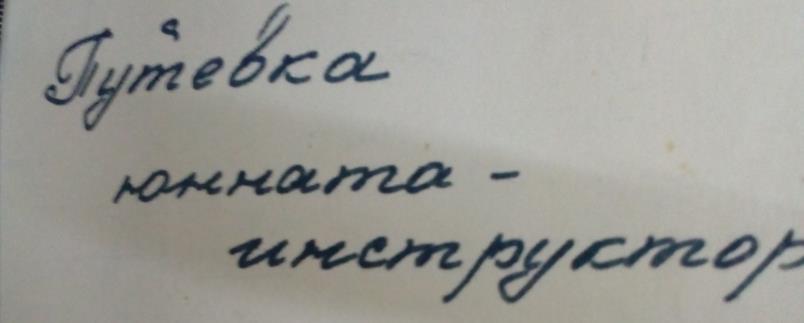 Путевка
юнната -
инструктор